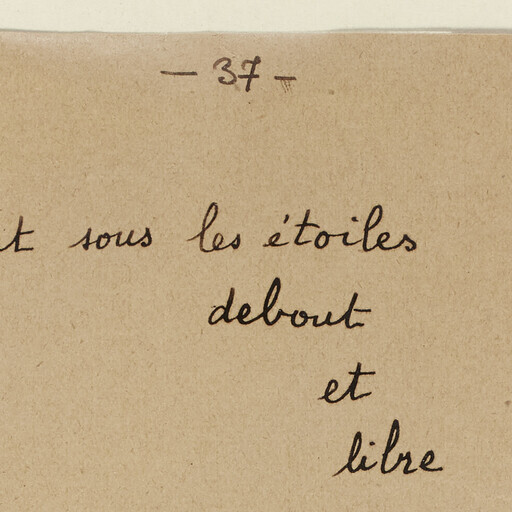 - 37 -
sous les étoiles
debout
et
libre